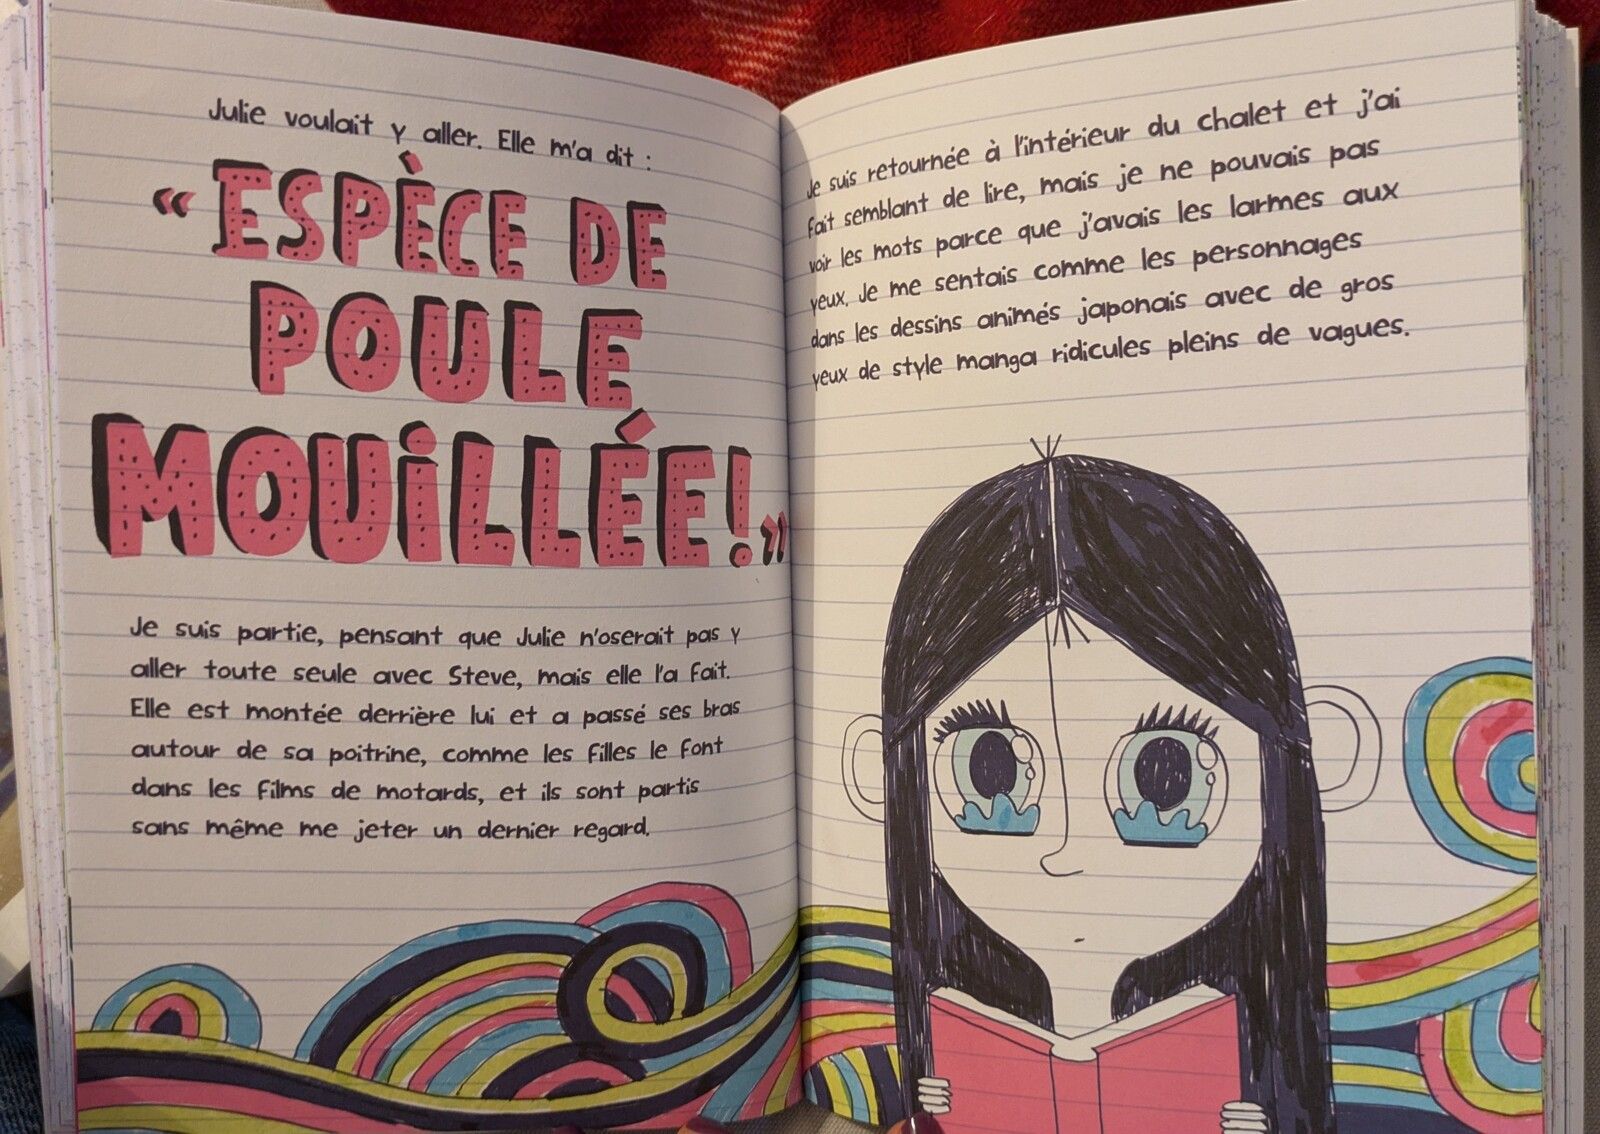 Julie voulait y aller. Elle m'a dit :
« ESPÈCE DE
POULE
MOUILLÉE! »
Je suis partie, pensant que Julie n'oserait pas y
aller toute seule avec Steve, mais elle l'a fait.
Elle est montée derrière lui et a passé ses bras
autour de sa poitrine, comme les filles le font
dans les films de motards, et ils sont partis
sans même me jeter un dernier regard.
Je suis retournée à l'intérieur du chalet et j'ai
fait semblant de lire, mais je ne pouvais pas
voir les mots parce que j'avais les larmes aux
yeux. Je me sentais comme les personnages
dans les dessins animés japonais avec de gros
yeux de style manga ridicules pleins de vagues.